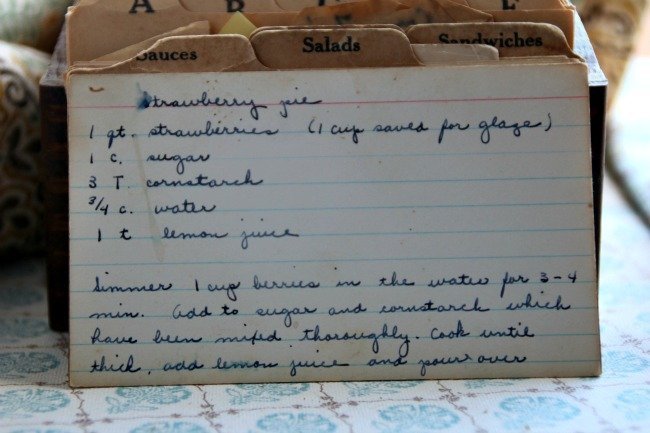 A B E
Sauces Salads Sandwiches
Strawberry pie
1 qt. strawberries (1 cup saved for glaze)
1 c. sugar
3 T. cornstarch
3/4 c. water
1 t lemon juice
Simmer 1 cup berries in the water for 3-4
min. Add to sugar and cornstarch which
have been mixed thoroughly. Cook until
thick, add lemon juice and pour over